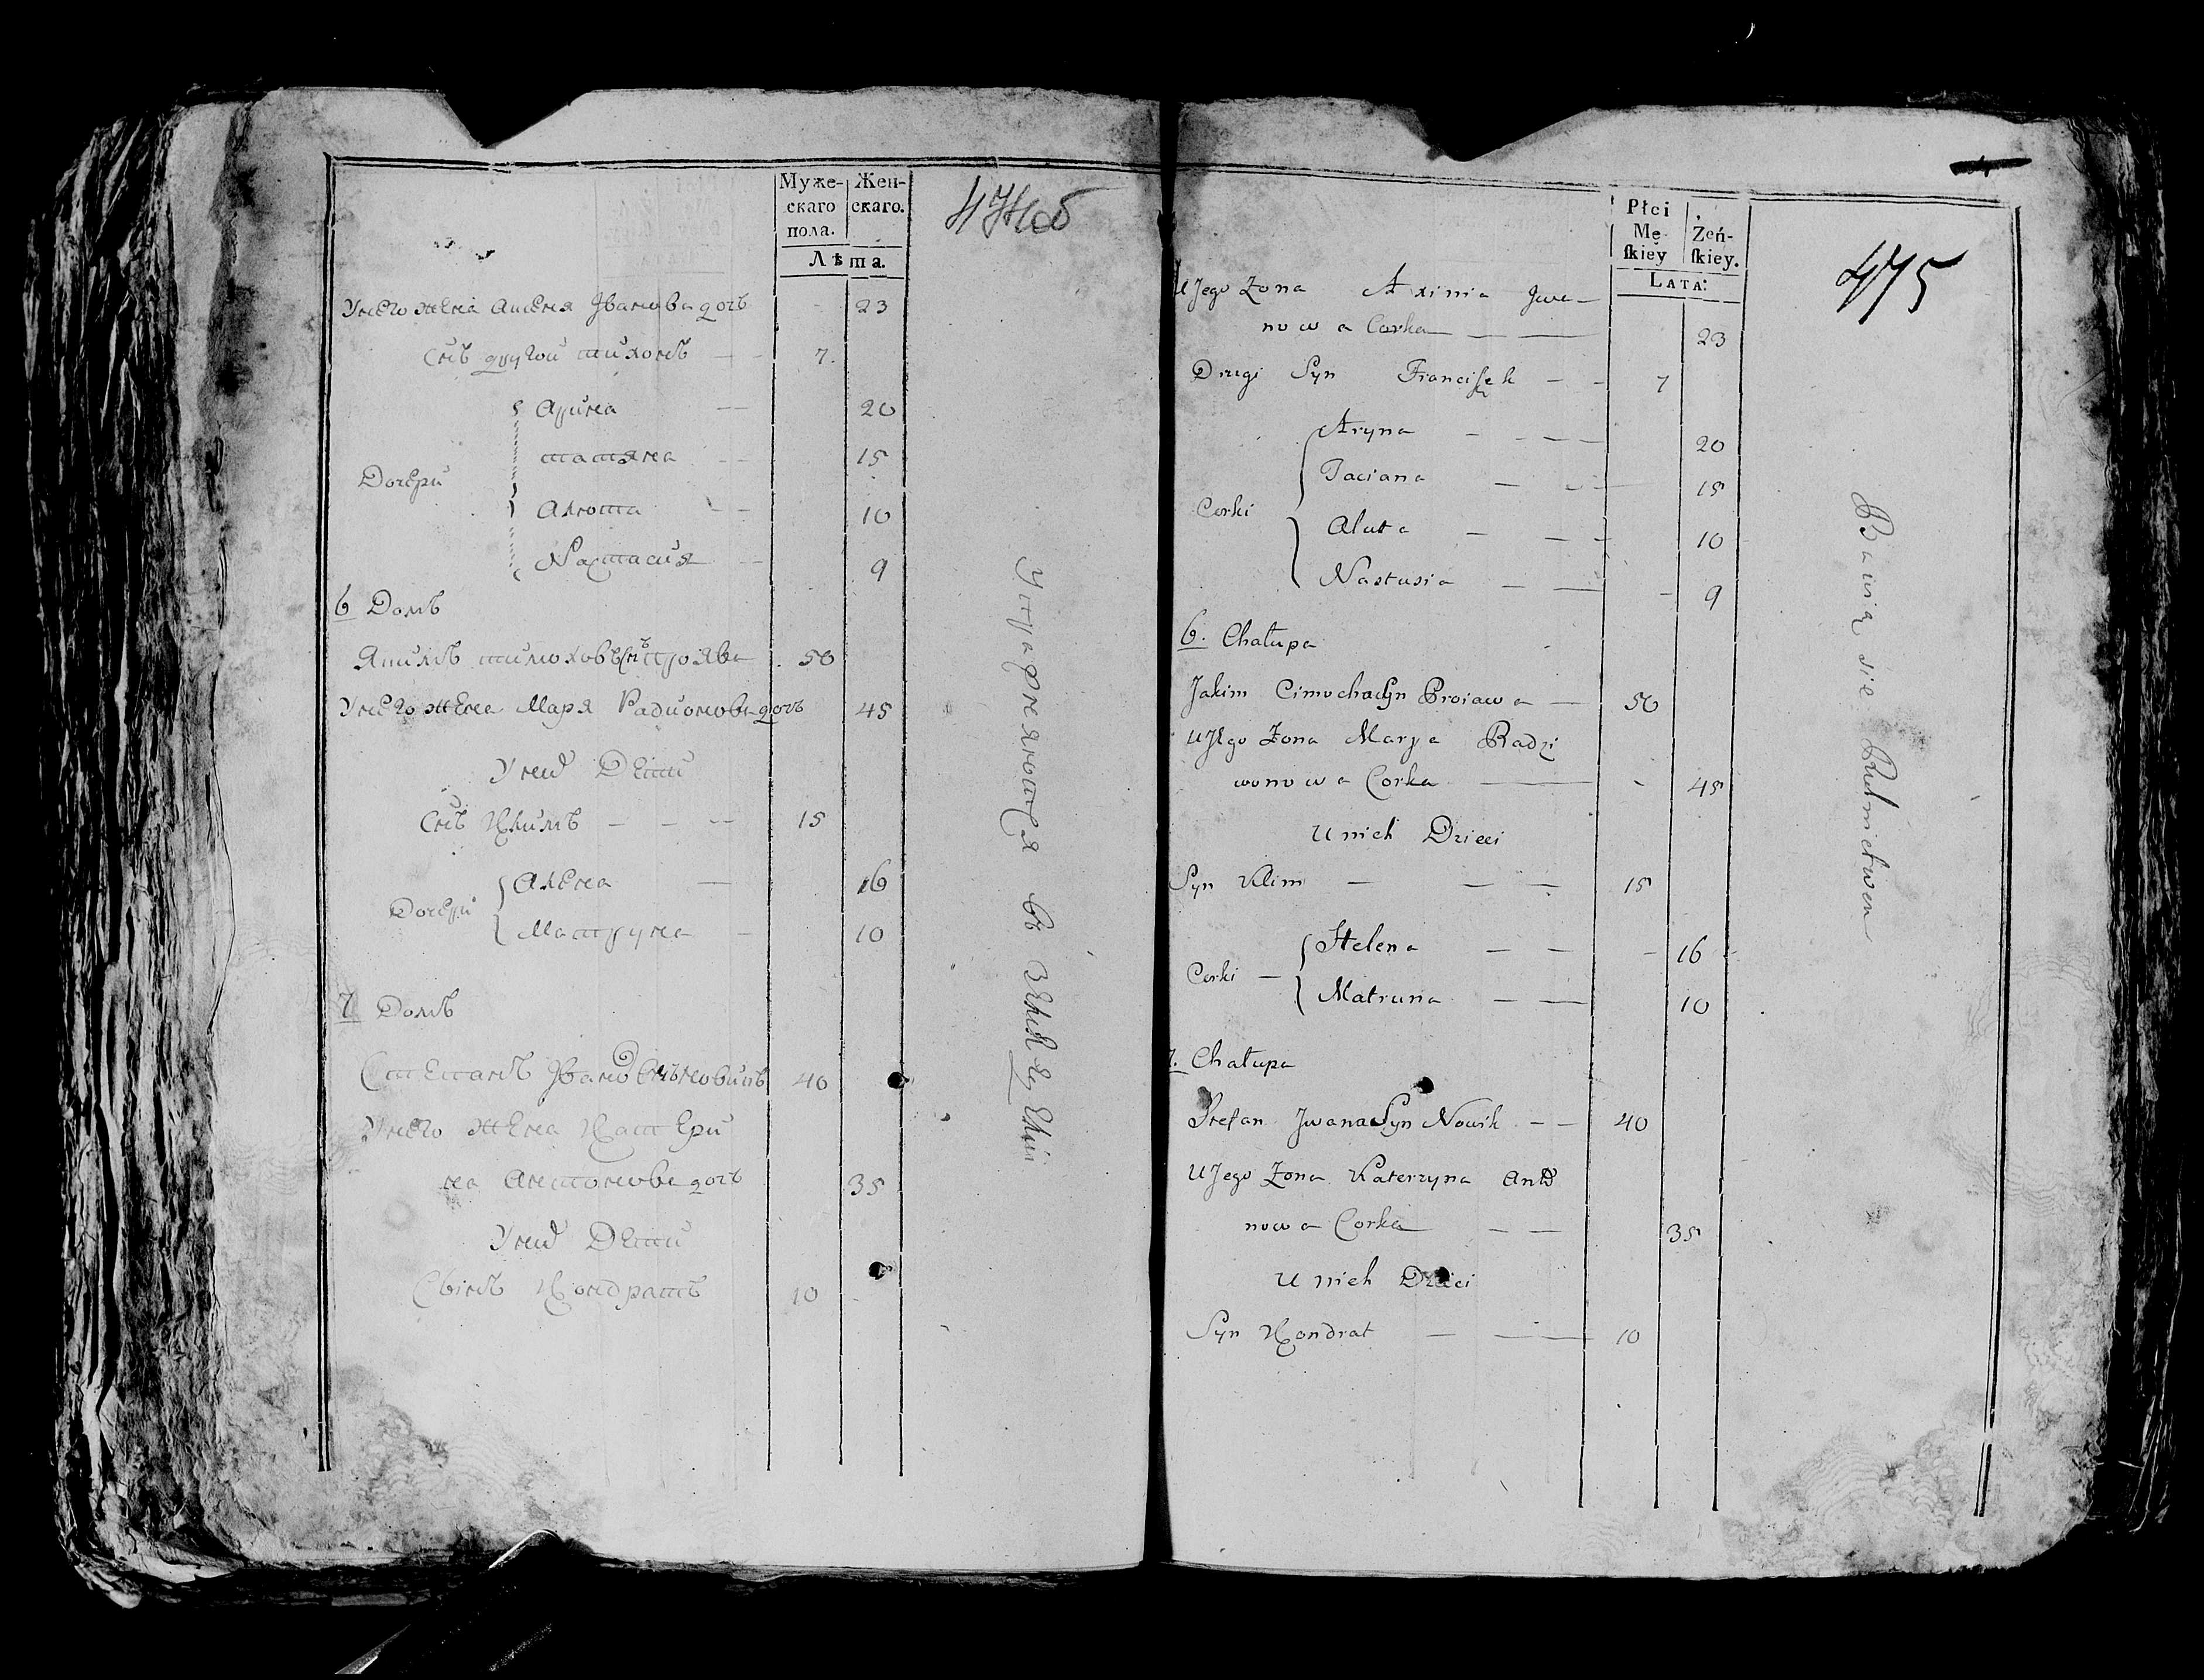 Муже-
скаго
пола.
Жен-
скаго.
Лѣта.
474об
Унего жена Ксеня Иванова дочь 23
Снъ другои тихонъ 7.
Дочери
Арина 20
татяна 15
Алюта 10
Настасия 9
6 Домъ
Якимъ тимоховъ Снъ Проява 50
Унего жена Маря Радионова дочь 45
Унихъ Дети
Снъ Климъ 15
Дочери
Алена 16
Матруна 10
7 Домъ
Степанъ Ивановъ Снъ Новикъ 40
Унего жена Катери
на Антонова дочь 35
Унихъ Дети
Сынъ Кондратъ 10
Упражняются въ земледелии
Płci
Mę-
ſkiey
Żeń-
ſkiey.
LATA:
475
U Jego Żona Axinia Jwa
nowa Corka 23
Drugi Syn Franciſzek 7
Corki
Aryna 20
Taciana 15
Aluta 10
Nastusia 9
6. Chałupa
Jakim Cimocha Syn Proiawa 50
U Jego Żona Marya Radzi
wonowa Corka 45
U nich Dzieci
Syn Klim 15
Corki
Helena 16
Matruna 10
7. Chałupa
Stefan Jwana Syn Nowik 40
U Jego Żona Katerzyna Anto
nowa Corka 35
U nich Dzieci
Syn Kondrat 10
Bawią się Rolnictwem